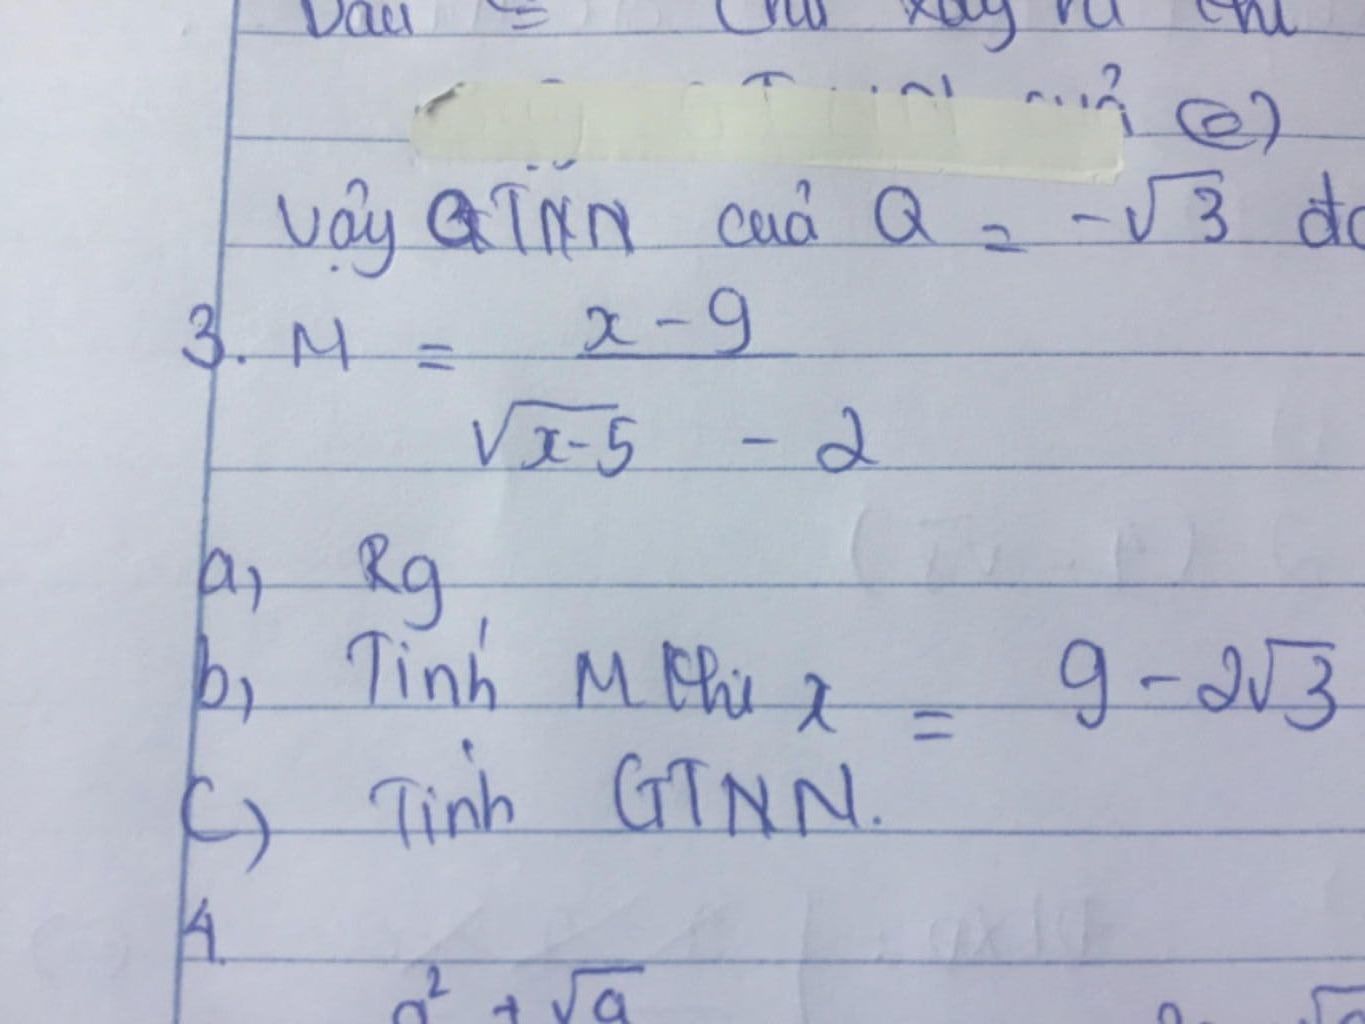 Dấu = chỉ xảy ra khi
của (2)
Vậy GTNN của Q = -√3
3. M = x - 9
√x-5 - 2
a, Rg
b, Tính M khi x = 9 - 2√3
c) Tính GTNN.
4.
a² + √a